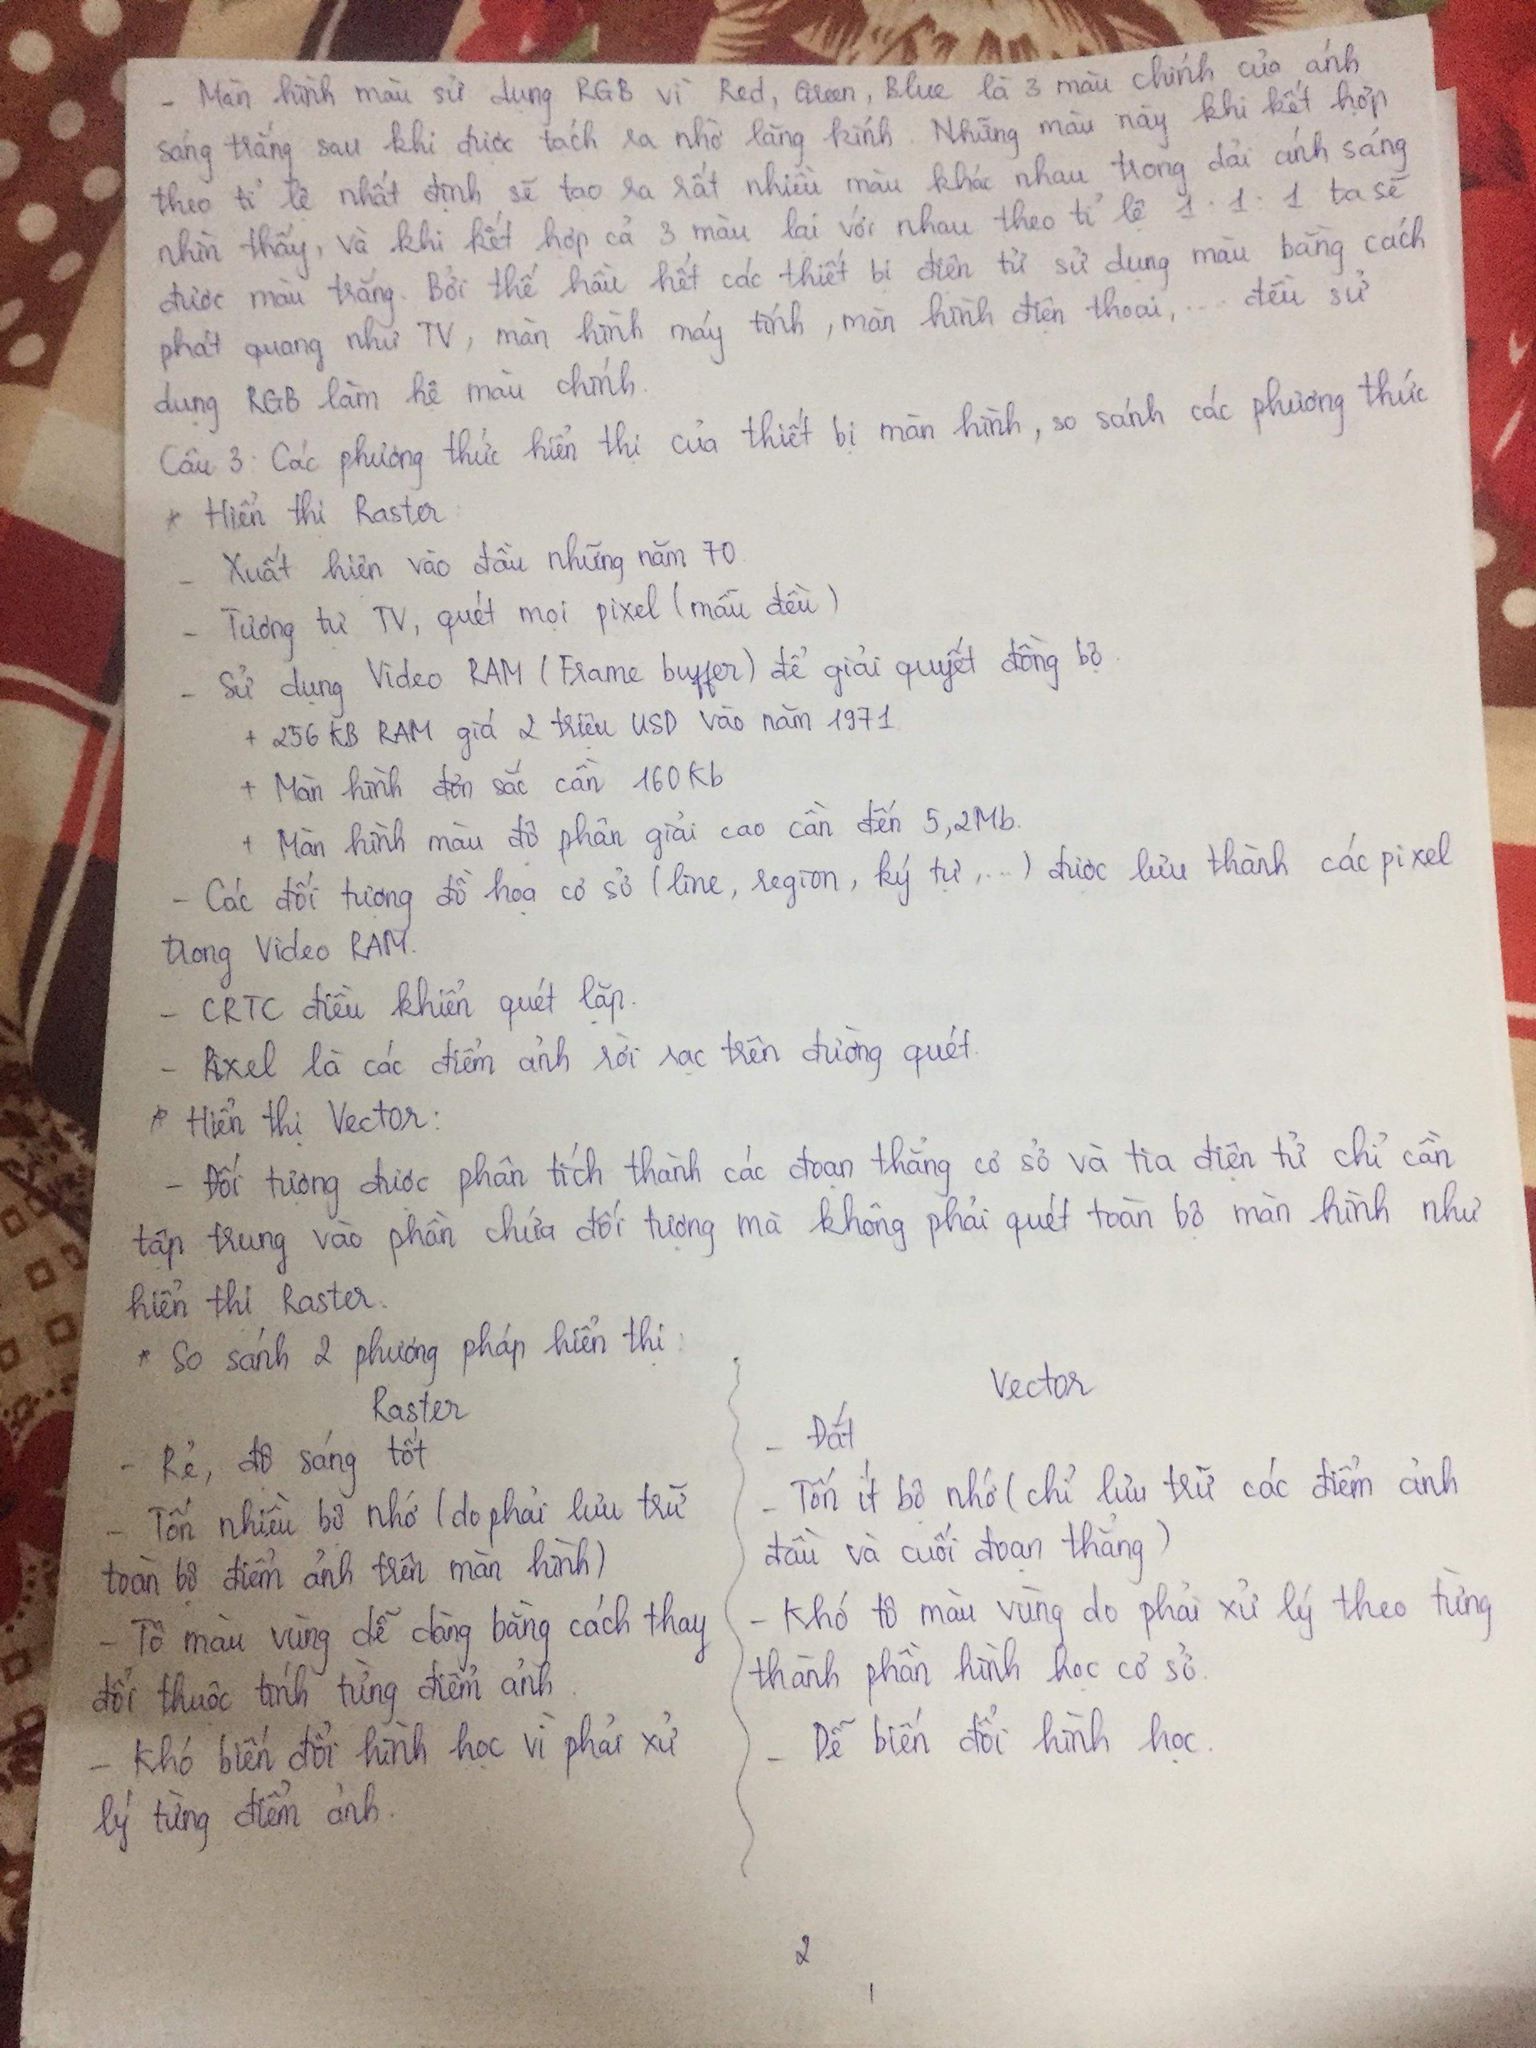 - Màn hình màu sử dụng RGB vì Red, Green, Blue là 3 màu chính của ánh
sáng trắng sau khi được tách ra nhờ lăng kính. Những màu này khi kết hợp
theo tỉ lệ nhất định sẽ tạo ra rất nhiều màu khác nhau trong dải ánh sáng
nhìn thấy, và khi kết hợp cả 3 màu lại với nhau theo tỉ lệ 1:1:1 ta sẽ
được màu trắng. Bởi thế hầu hết các thiết bị điện tử sử dụng màu bằng cách
phát quang như TV, màn hình máy tính, màn hình điện thoại, ... đều sử
dụng RGB làm hệ màu chính.
Câu 3: Các phương thức hiển thị của thiết bị màn hình, so sánh các phương thức
* Hiển thị Raster
- Xuất hiện vào đầu những năm 70.
- Tương tự TV, quét mọi pixel (mẫu đều)
- Sử dụng Video RAM (Frame buffer) để giải quyết đồng bộ.
+ 256 KB RAM giá 2 triệu USD vào năm 1971
+ Màn hình đơn sắc cần 160Kb
+ Màn hình màu độ phân giải cao cần đến 5,2Mb.
- Các đối tượng đồ hoạ cơ sở (line, region, ký tự, ...) được lưu thành các pixel
trong Video RAM.
- CRTC điều khiển quét lặp.
- Pixel là các điểm ảnh rời rạc trên đường quét.
* Hiển thị Vector:
- Đối tượng được phân tích thành các đoạn thẳng cơ sở và tia điện tử chỉ cần
tập trung vào phần chứa đối tượng mà không phải quét toàn bộ màn hình như
hiển thị Raster.
* So sánh 2 phương pháp hiển thị:
Raster
- Rẻ, độ sáng tốt
- Tốn nhiều bộ nhớ (do phải lưu trữ
toàn bộ điểm ảnh trên màn hình)
- Tô màu vùng dễ dàng bằng cách thay
đổi thuộc tính từng điểm ảnh.
- Khó biến đổi hình học vì phải xử
lý từng điểm ảnh.
Vector
- Đắt
- Tốn ít bộ nhớ (chỉ lưu trữ các điểm ảnh
đầu và cuối đoạn thẳng)
- Khó tô màu vùng do phải xử lý theo từng
thành phần hình học cơ sở.
- Dễ biến đổi hình học.
2